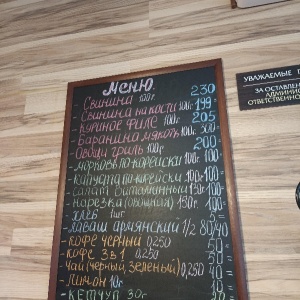 Меню
Свинина 100г. 230
Свинина на кости 100г. 199=
Куриное филе 100г. 205
Баранина мякоть 100г. 300
Овощи гриль 100г. 200
- Морковь по-корейски 100г. 100=
- Капуста по-корейски 100г. 100=
- Салат витаминный 150г. 100=
- Нарезка (овощная) 150г. 100=
- Хлеб 1шт.
- Лаваш армянский 1/2 80/40
- Кофе черный 0,250 50=
- Кофе 3в1 0,250
- Чай (черный, зеленый) 0,250 40=
- Лимон 10г.
- Кетчуп 30г.
УВАЖАЕМЫЕ
ЗА ОСТАВЛЕН
АДМИНИС
ОТВЕТСТВЕННО